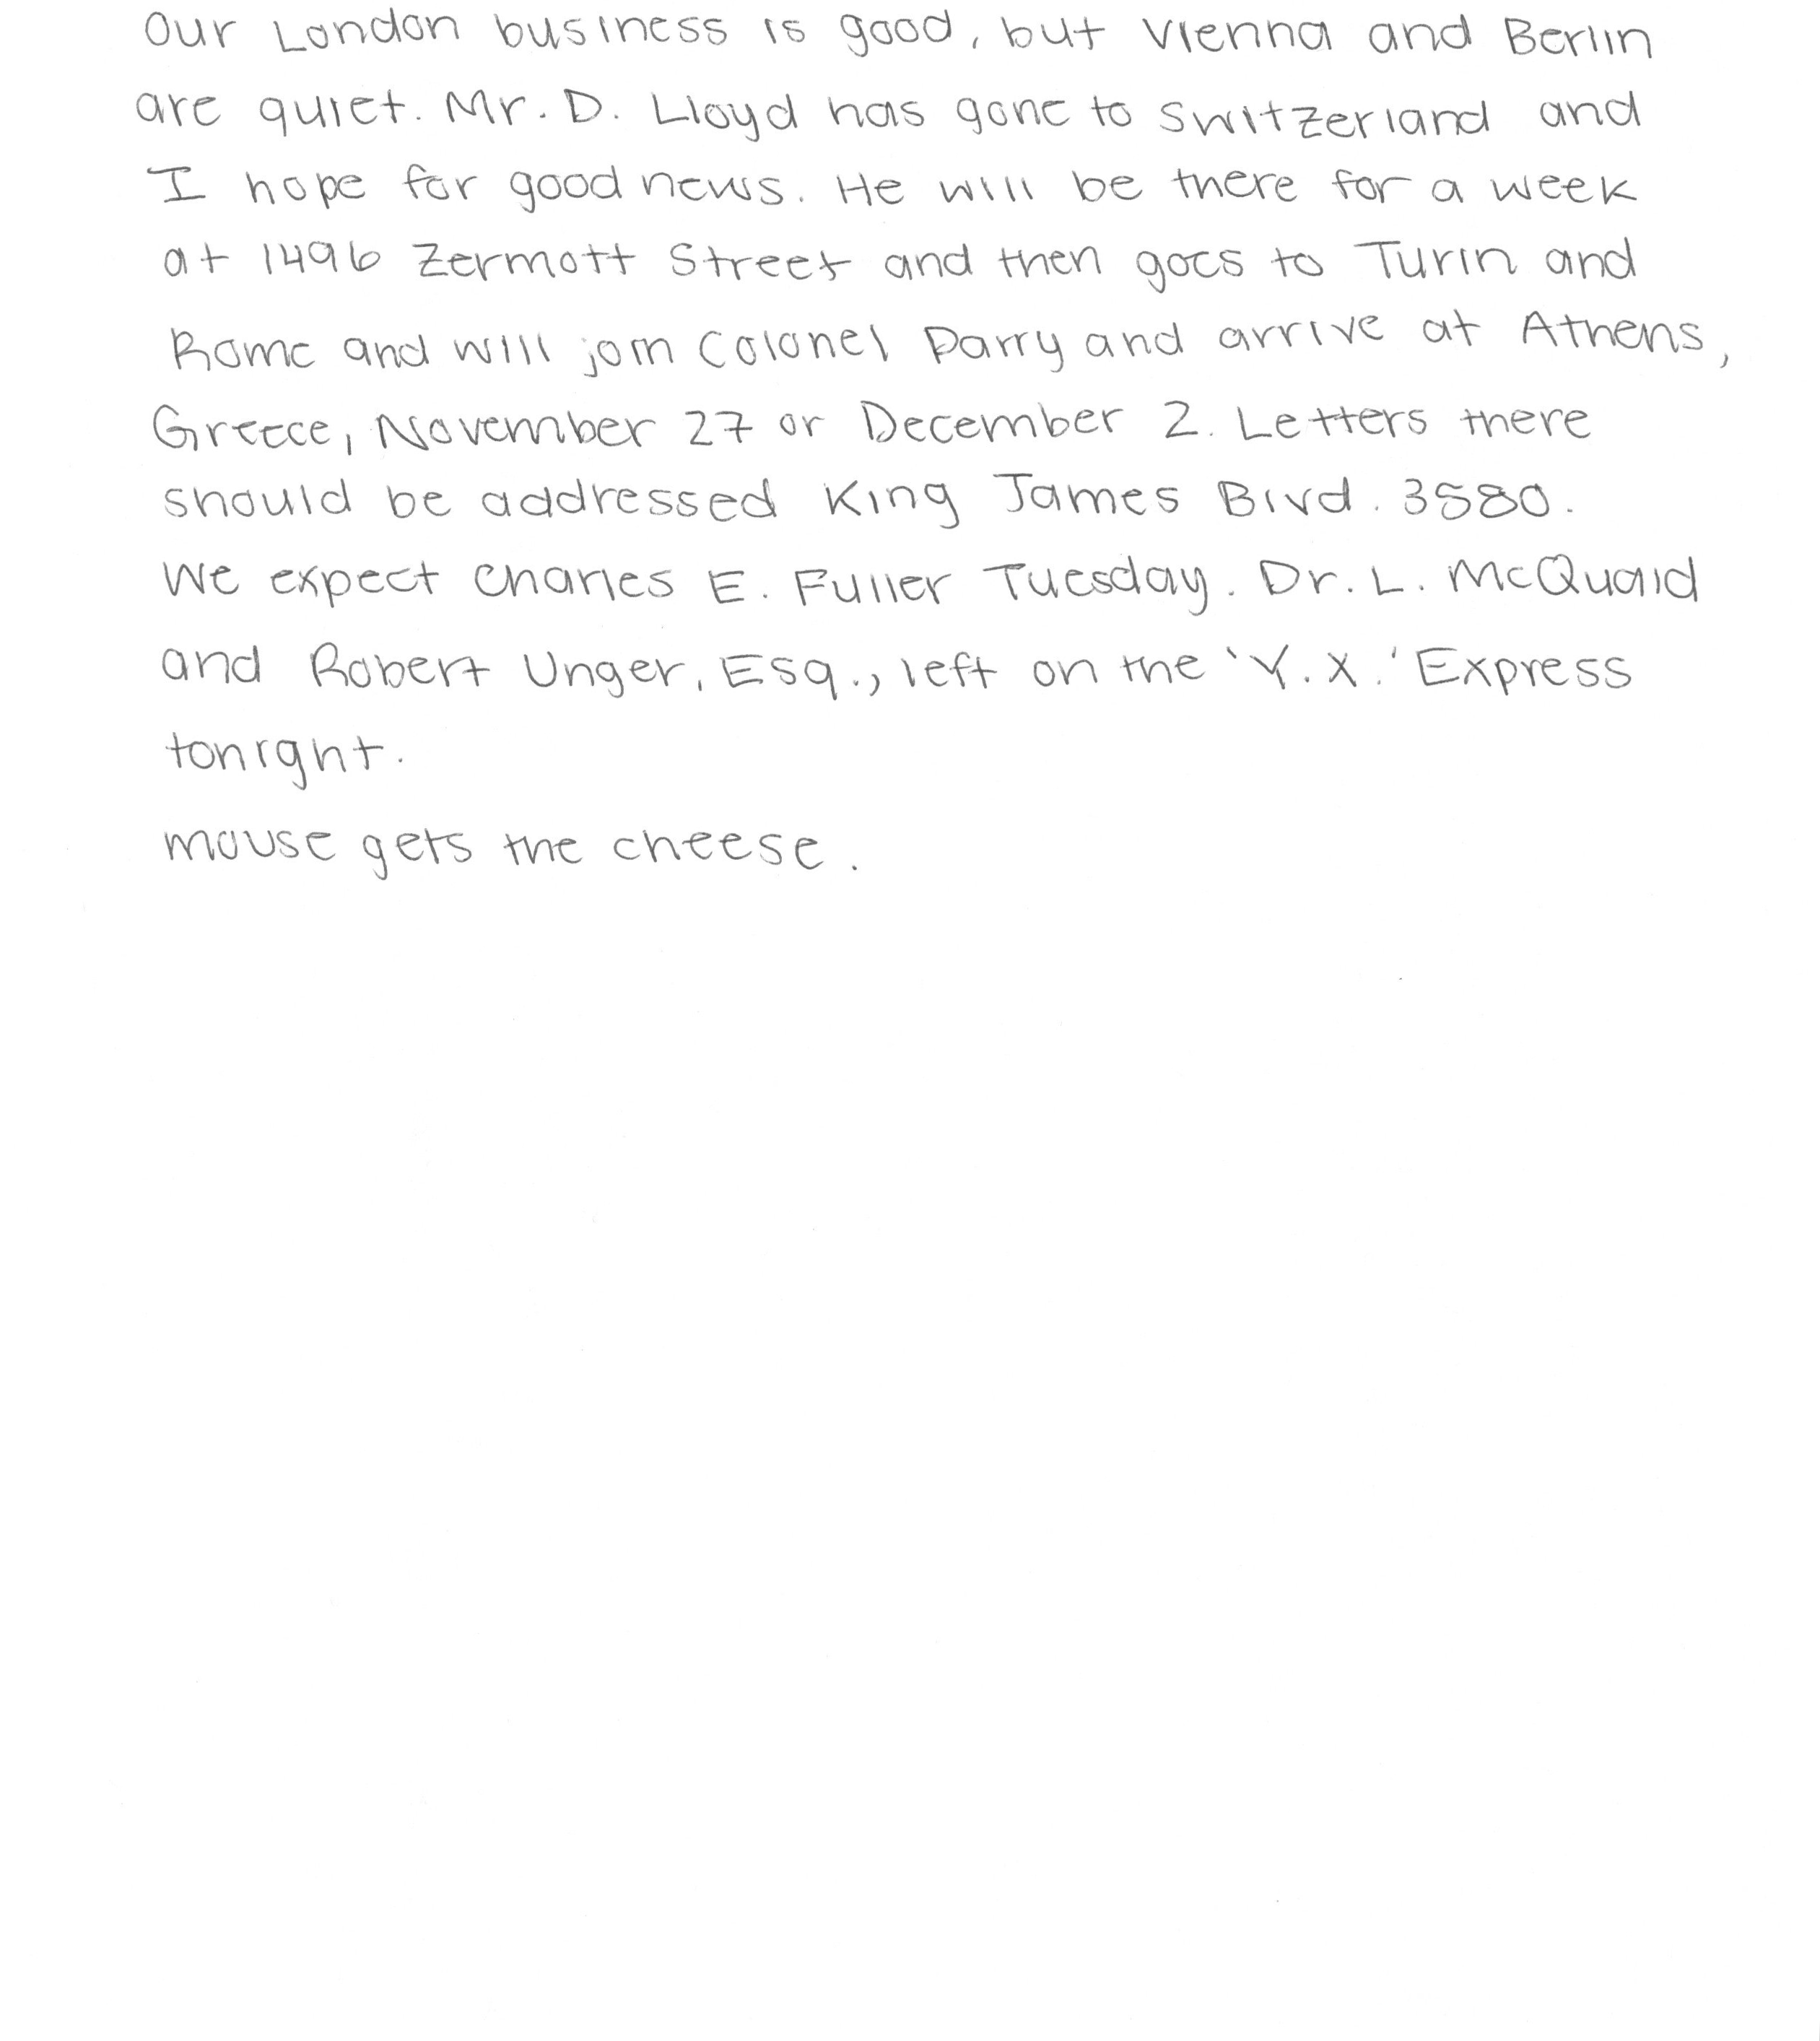 Our London business is good, but Vienna and Berlin
are quiet. Mr. D. Lloyd has gone to Switzerland and
I hope for good news. He will be there for a week
at 1496 Zermott Street and then goes to Turin and
Rome and will join Colonel Parry and arrive at Athens,
Greece, November 27 or December 2. Letters there
should be addressed King James Blvd. 3580.
We expect Charles E. Fuller Tuesday. Dr. L. McQuaid
and Robert Unger, Esq., left on the 'Y.X.' Express
tonight.
mouse gets the cheese.